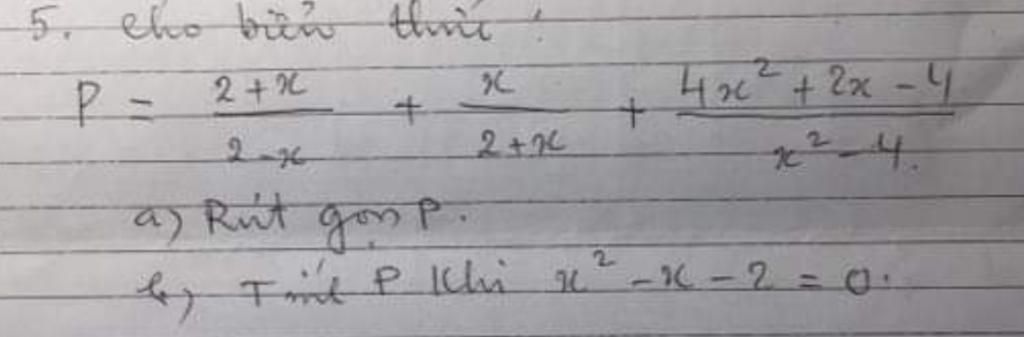 5. Cho biểu thức :
P = \frac{2+x}{2-x} + \frac{x}{2+x} + \frac{4x^2+2x-4}{x^2-4}.
a) Rút gọn P.
b) Tính P Khi x^2 - x - 2 = 0.